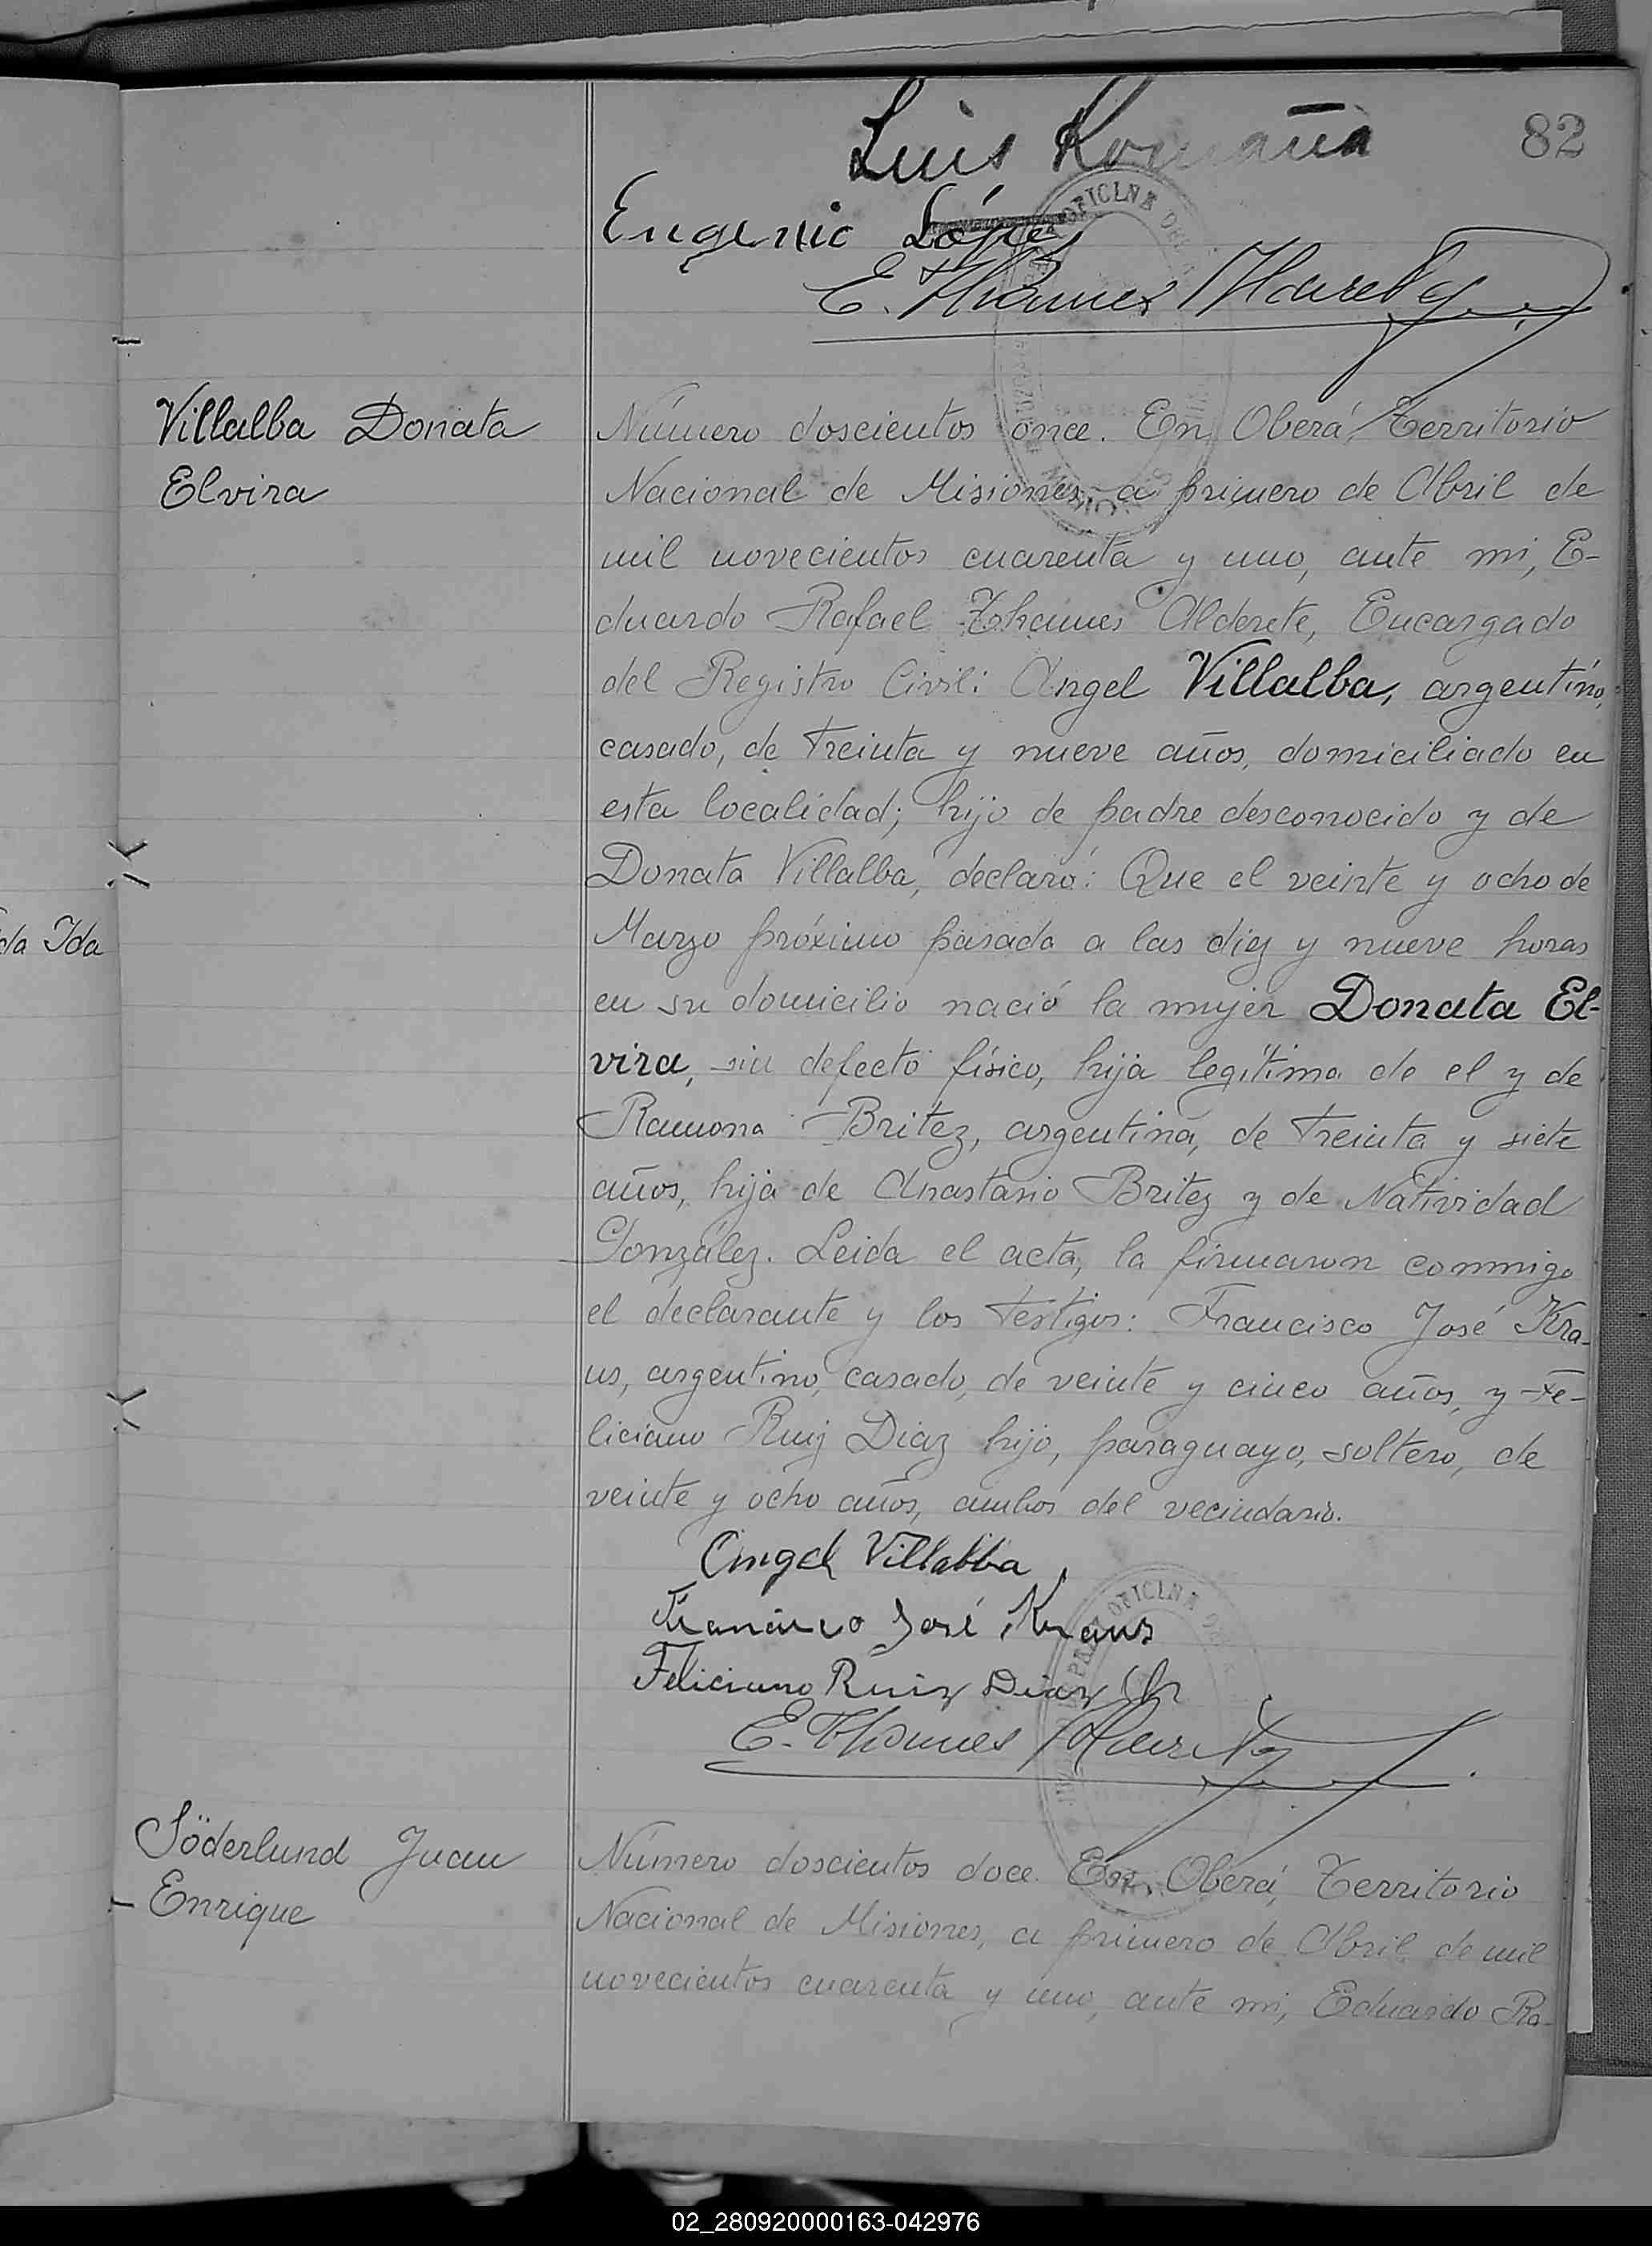 82
Luis Romaña
Eugenio López
E. Thames Alderete
Villalba Donata
Elvira
Número doscientos once. En Oberá, Territorio
Nacional de Misiones, a primero de Abril de
mil novecientos cuarenta y uno, ante mi, E-
duardo Rafael Thames Alderete, Encargado
del Registro Civil: Angel Villalba, argentino,
casado, de treinta y nueve años, domiciliado en
esta localidad; hijo de padre desconocido y de
Donata Villalba, declaró: Que el veinte y ocho de
Marzo próximo pasado a las diez y nueve horas
en su domicilio nació la mujer Donata El-
vira, sin defecto físico, hija legítima de el y de
Ramona Britez, argentina, de treinta y siete
años, hija de Anastasio Britez y de Natividad
González. Leida el acta, la firmaron conmigo
el declarante y los testigos: Francisco José Kra-
us, argentino, casado, de veinte y cinco años, y Fe-
liciano Ruiz Diaz hijo, paraguayo, soltero, de
veinte y ocho años, ambos del vecindario.
da Ida
Angel Villalba
Francisco José Kraus
Feliciano Ruiz Diaz (h
E. Thames Alderete
Söderlund Juan
Enrique
Número doscientos doce. En Oberá, Territorio
Nacional de Misiones, a primero de Abril de mil
novecientos cuarenta y uno, ante mi, Eduardo Ra-
02_280920000163-042976